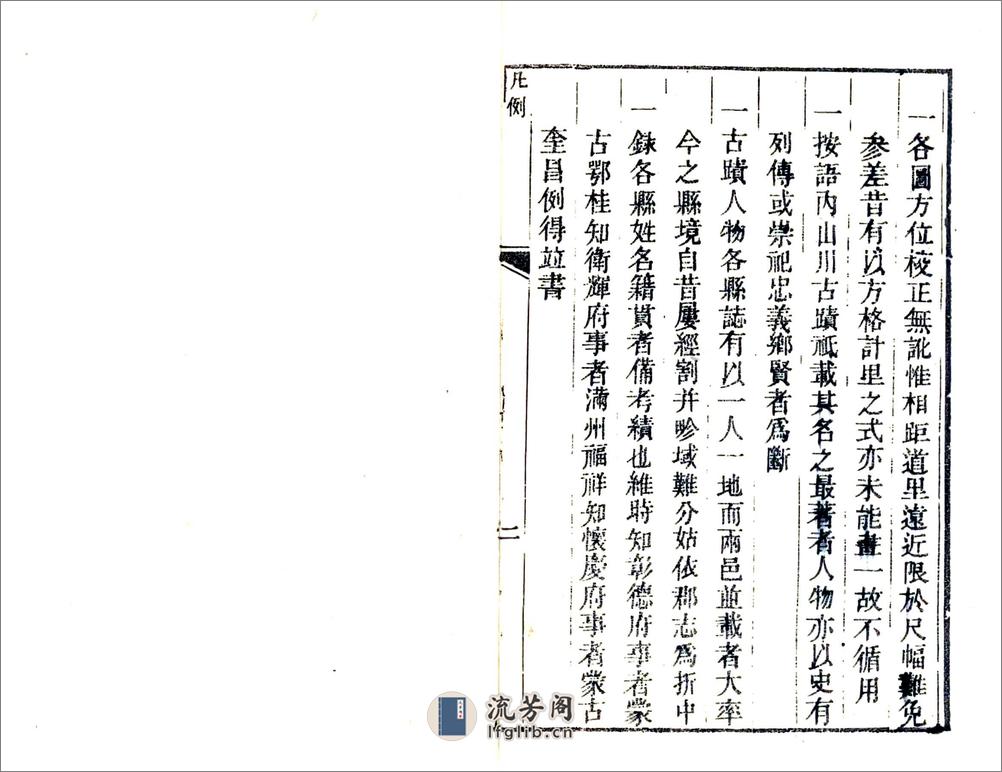 一各圖方位校正無訛惟相距道里遠近限於尺幅難免
參差昔有以方格計里之式亦未能畫一故不循用
一按語內山川古蹟祇載其名之最著者人物亦以史有
列傳或崇祀忠義鄉賢者爲斷
一古蹟人物各縣誌有以一人一地而兩邑並載者大率
今之縣境自昔屢經割并畛域難分姑依郡志爲折中
一錄各縣姓名籍貫者備考績也維時知彰德府事者蒙
古鄂桂知衛輝府事者滿州福祥知懷慶府事者蒙古
奎昌例得竝書
凡例
二
流芳阁
lfglib.cn